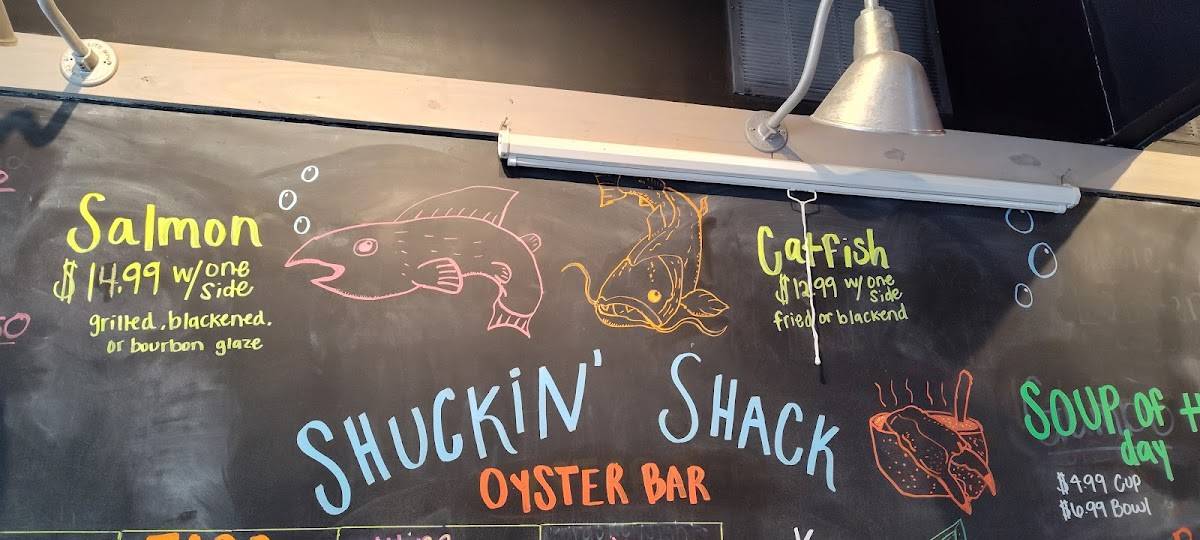 Salmon
$14.99 w/ one side
grilled, blackened,
or bourbon glaze
Catfish
$12.99 w/ one side
fried or blackend
SHUCKiN' SHACK
OYSTER BAR
SOUP OF
day
$4.99 Cup
$6.99 Bowl